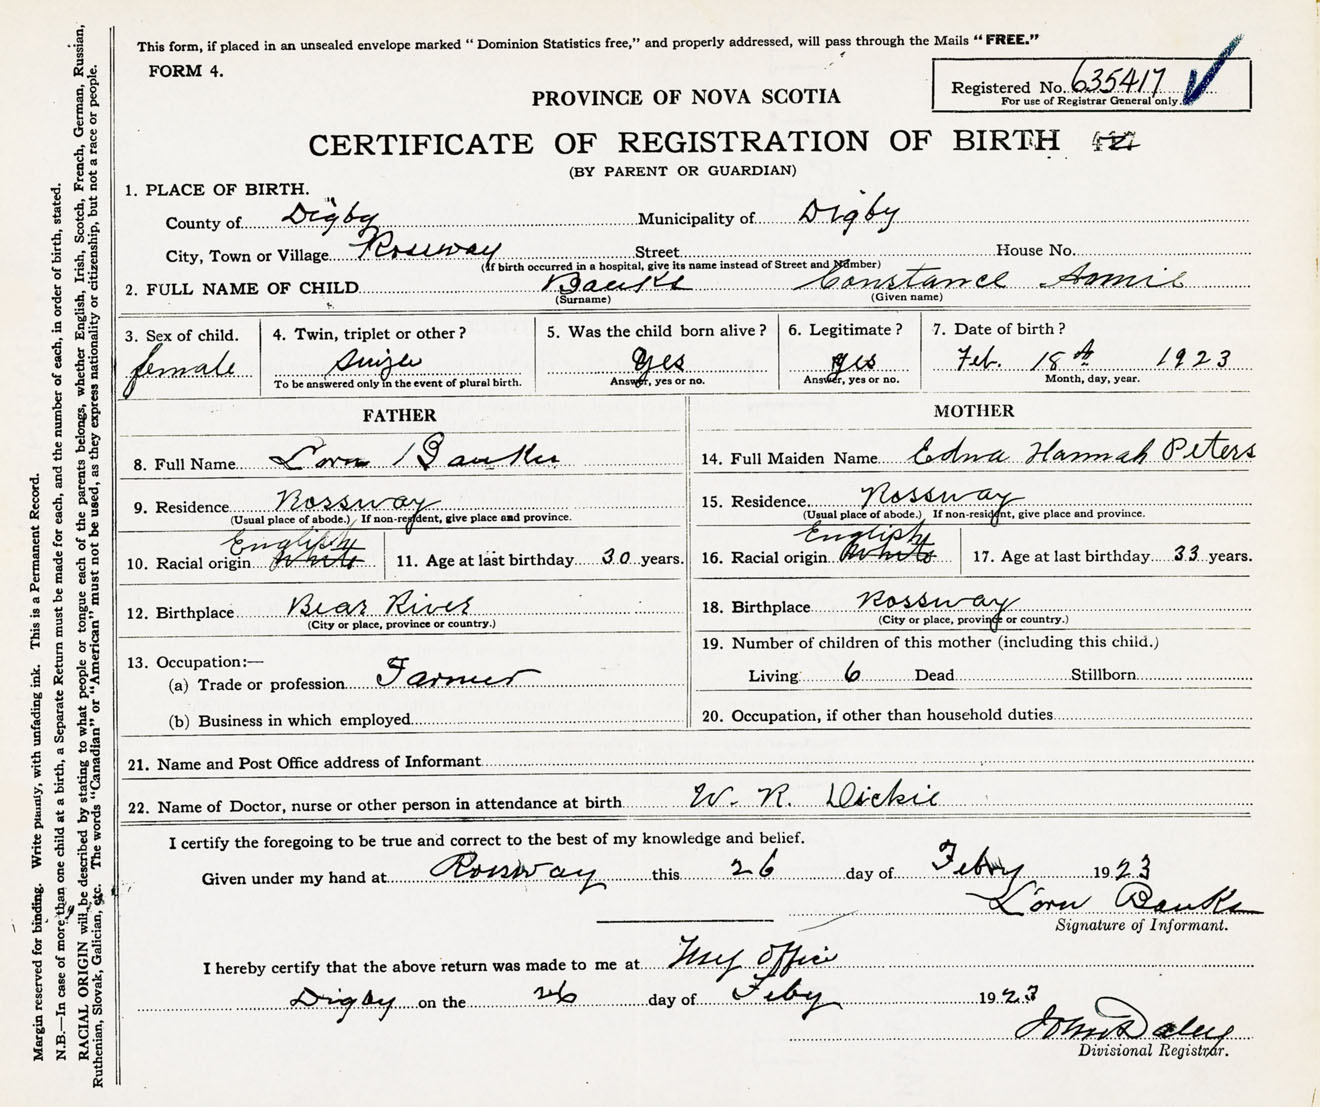 This form, if placed in an unsealed envelope marked “ Dominion Statistics free,” and properly addressed, will pass through the Mails “ FREE.”
FORM 4.
Registered No. 635417
For use of Registrar General only.
PROVINCE OF NOVA SCOTIA
CERTIFICATE OF REGISTRATION OF BIRTH
(BY PARENT OR GUARDIAN)
1. PLACE OF BIRTH.
County of Digby Municipality of Digby
City, Town or Village Rossway Street House No.
(If birth occurred in a hospital, give its name instead of Street and Number)
2. FULL NAME OF CHILD Banks Constance Annie
(Surname) (Given name)
3. Sex of child. 4. Twin, triplet or other ? 5. Was the child born alive ? 6. Legitimate ? 7. Date of birth ?
female Single Yes yes Feb. 18th 1923
To be answered only in the event of plural birth. Answer, yes or no. Answer, yes or no. Month, day, year.
FATHER MOTHER
8. Full Name Lorn Banks 14. Full Maiden Name Edna Hannah Peters
9. Residence Rossway 15. Residence Rossway
(Usual place of abode.) If non-resident, give place and province. (Usual place of abode.) If non-resident, give place and province.
English English
10. Racial origin White 11. Age at last birthday 30 years. 16. Racial origin White 17. Age at last birthday 33 years.
12. Birthplace Bear River 18. Birthplace Rossway
(City or place, province or country.) (City or place, province or country.)
19. Number of children of this mother (including this child.)
13. Occupation:—
(a) Trade or profession Farmer Living 6 Dead Stillborn
(b) Business in which employed 20. Occupation, if other than household duties
21. Name and Post Office address of Informant
22. Name of Doctor, nurse or other person in attendance at birth W. R. Dickie
I certify the foregoing to be true and correct to the best of my knowledge and belief.
Given under my hand at Rossway this 26 day of Feby 1923
Lorn Banks
Signature of Informant.
I hereby certify that the above return was made to me at My Office
Digby on the 26 day of Feby 1923
John Daley
Divisional Registrar.
Margin reserved for binding. Write plainly, with unfading ink. This is a Permanent Record.
N.B.—In case of more than one child at a birth, a Separate Return must be made for each, and the number of each, in order of birth, stated.
RACIAL ORIGIN will be described by stating to what people or tongue each of the parents belongs, whether English, Irish, Scotch, French, German, Russian,
Ruthenian, Slovak, Galician, etc. The words “Canadian” or “American” must not be used, as they express nationality or citizenship, but not a race or people.